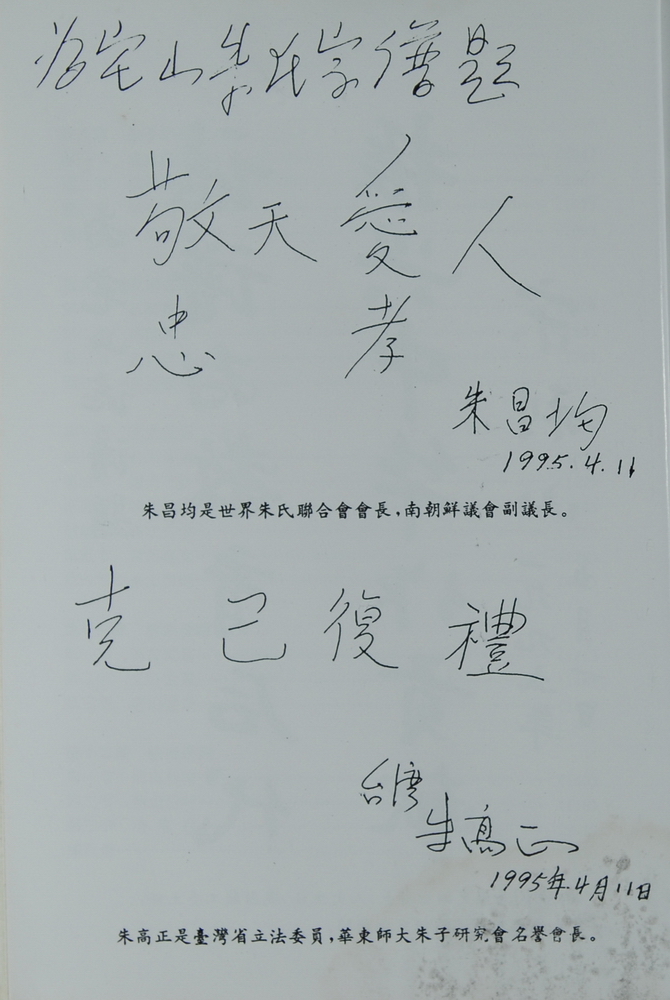 为宅山朱氏宗谱题
敬天愛人
忠孝
朱昌均
1995.4.11
朱昌均是世界朱氏聯合會會長，南朝鮮議會副議長。
克己復禮
台湾
朱高正
1995年4月11日
朱高正是臺灣省立法委員，華東師大朱子研究會名譽會長。